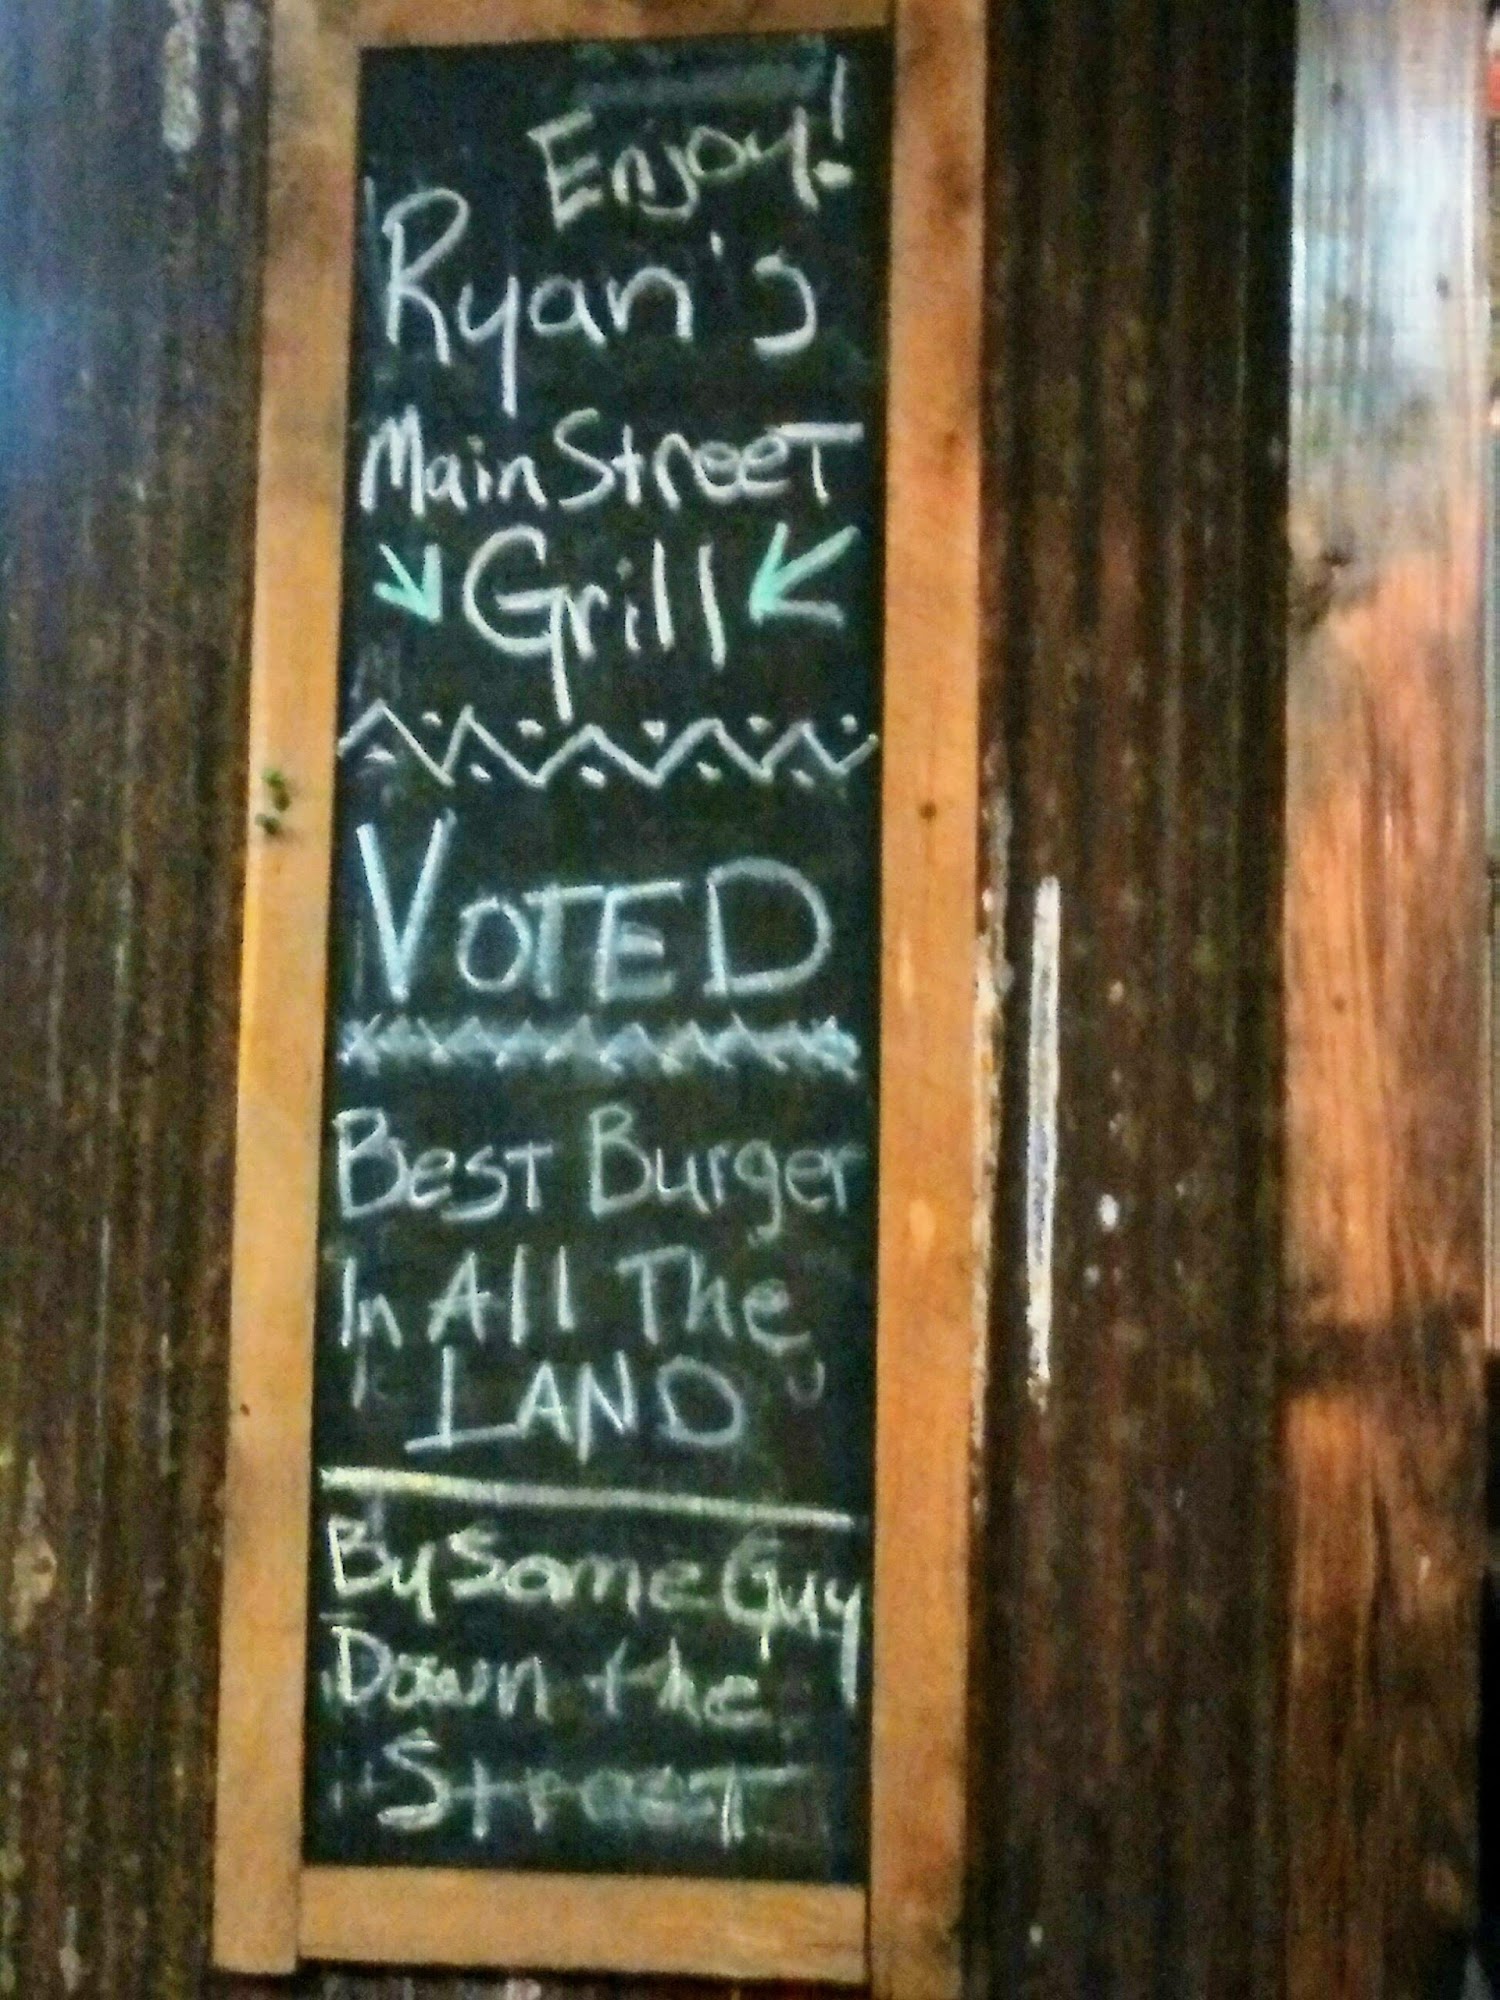 Enjoy!
Ryan's
Main StreeT
Grill
VOTED
BesT Burger
In All The
LAND
By Some Guy
Down the
StreeT